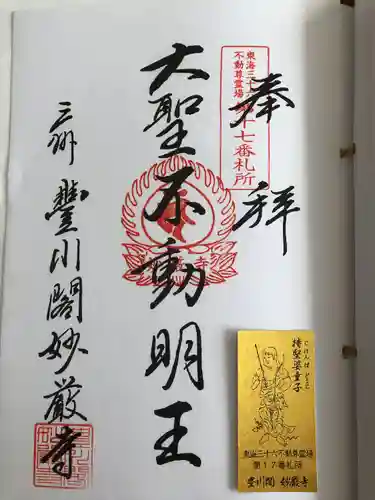 奉拝
東海三十六
不動尊霊場
第十七番札所
大聖不動明王
三州 豐川閣妙厳寺
じけんばどうじ
持堅婆童子
東海三十六不動尊霊場
第17番札所
豊川閣 妙厳寺